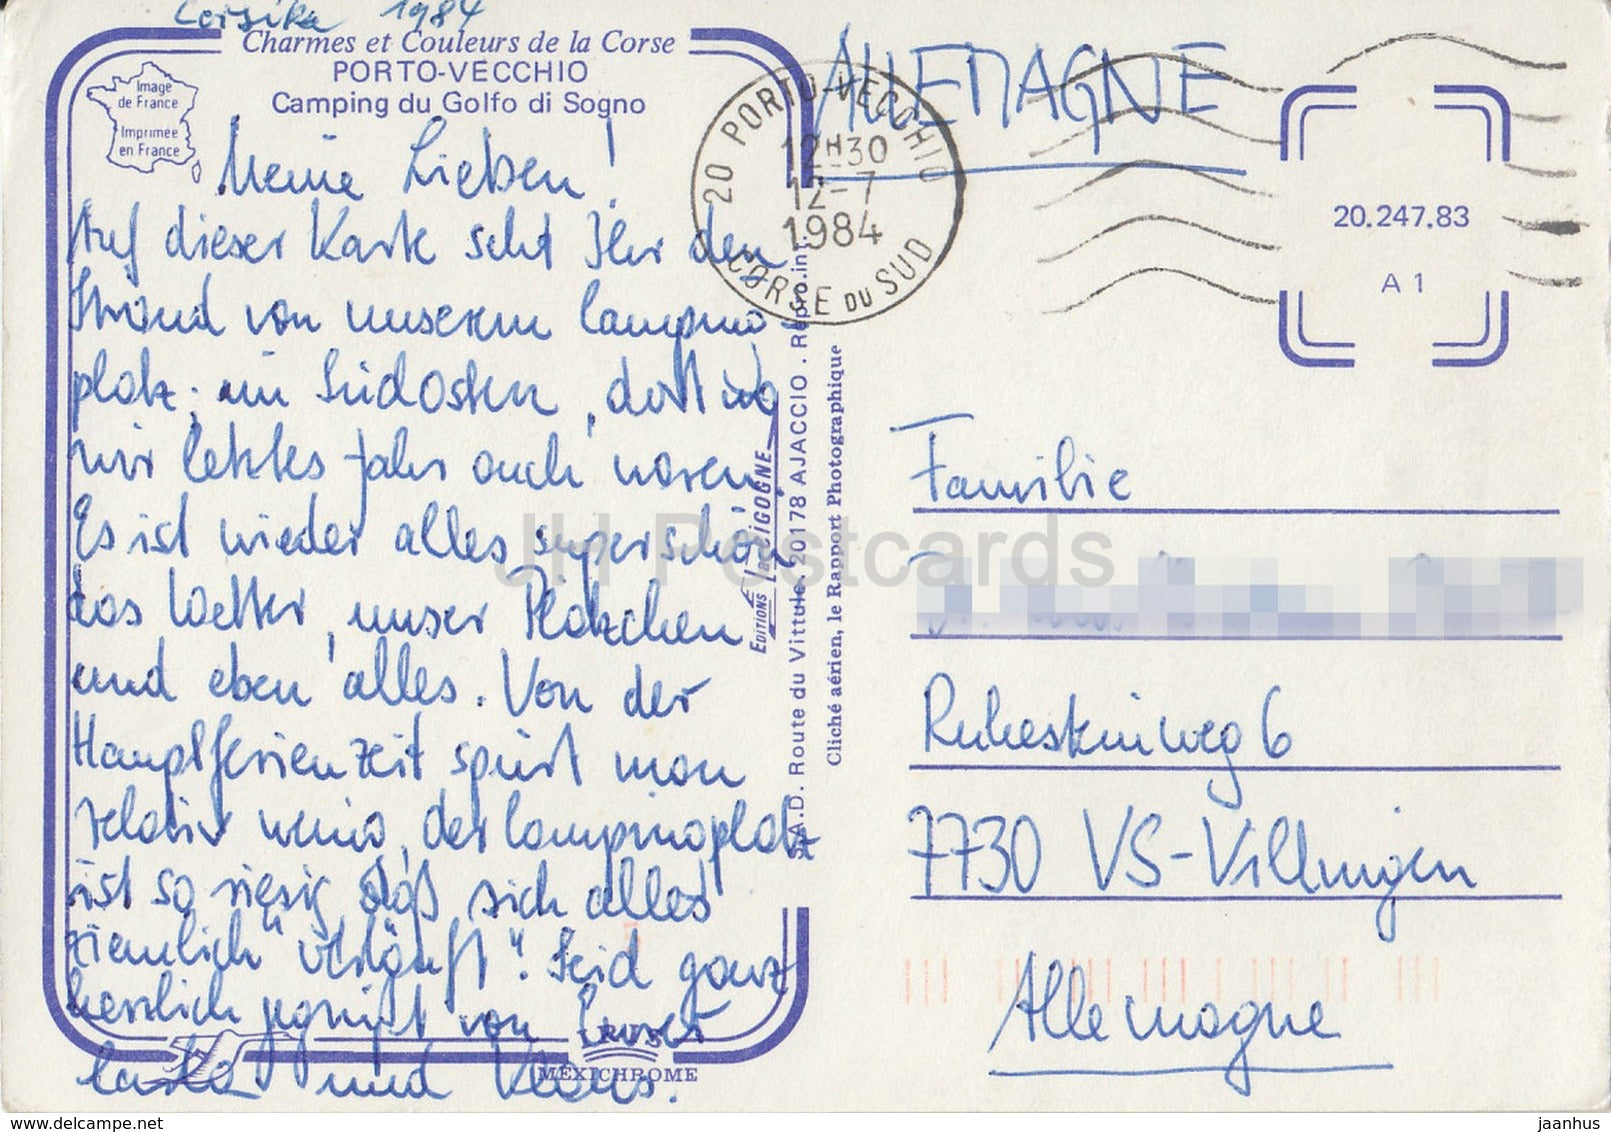 Corsika 1984
Charmes et Couleurs de la Corse
PORTO-VECCHIO
Camping du Golfo di Sogno
Image
de France
Imprimée
en France
Meine Lieben!
Auf dieser Karte seht Ihr den
Strand von unserem Camping-
platz, im Südosten, dort wo
wir letztes Jahr auch waren.
Es ist wieder alles superschön
das Wetter, unser Plätzchen
und eben alles. Von der
Hauptferienzeit spürt man
relativ wenig, der Campingplatz
ist so riesig, daß sich alles
ziemlich "verläuft". Seid ganz
herzlich gegrüßt von Eurer
und Klaus.
IRIS
MEXICHROME
EDITIONS La CIGOGNE
S.A.D. Route du Vittulo 20178 AJACCIO. Repro. int.
Cliché aérien, le Rapport Photographique
20 PORTO-VECCHIO
12H30
12-7
1984
CORSE DU SUD
ALLEMAGNE
20.247.83
A 1
Familie
Ruhesteinweg 6
7730 VS-Villingen
Allemagne
JH Postcards
delcampe.net
jaanhus